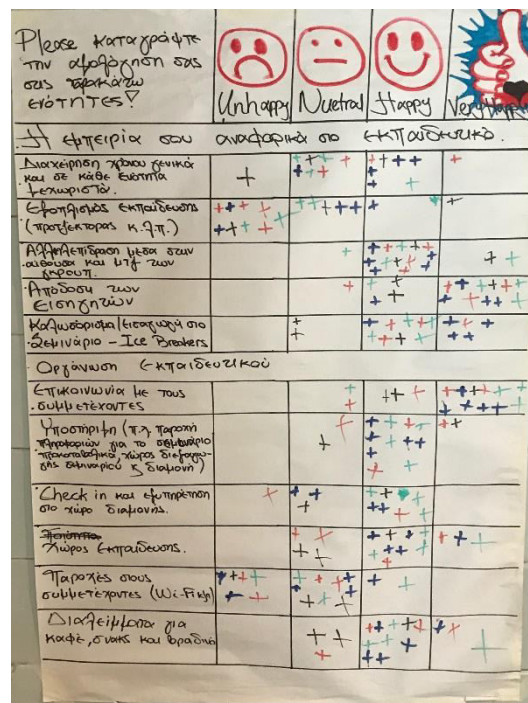 Please καταγράψτε
την αξιολόγηση σας
στις παρακάτω
ενότητες!
Unhappy
Nuetral
Happy
Very Happy
Η εμπειρία σου αναφορικά στο εκπαιδευτικό.
Διαχείρηση χρόνου γενικά
και σε κάθε ενότητα
ξεχωριστά.
Εξοπλισμός εκπαίδευσης
(προτζέκτορας κ.λ.π.)
Αλληλεπίδραση μέσα στην
αίθουσα και μτξ των
γκρουπ.
Απόδοση των
Εισηγητών
Καλωσόρισμα/Εισαγωγή στο
Σεμινάριο - Ice Breakers
Οργάνωση Εκπαιδευτικού
Επικοινωνία με τους
συμμετέχοντες
Υποστήριξη (π.χ παροχή
πληροφοριών για το σεμινάριο
χώρος διεξαγω-
γής σεμιναρίου & διαμονή)
Check in και εξυπηρέτηση
στο χώρο διαμονής.
Χώρος Εκπαίδευσης.
Παροχές στους
συμμετέχοντες (Wi-Fi κλπ)
Διαλείμματα για
καφέ, σνακς και βραδινό